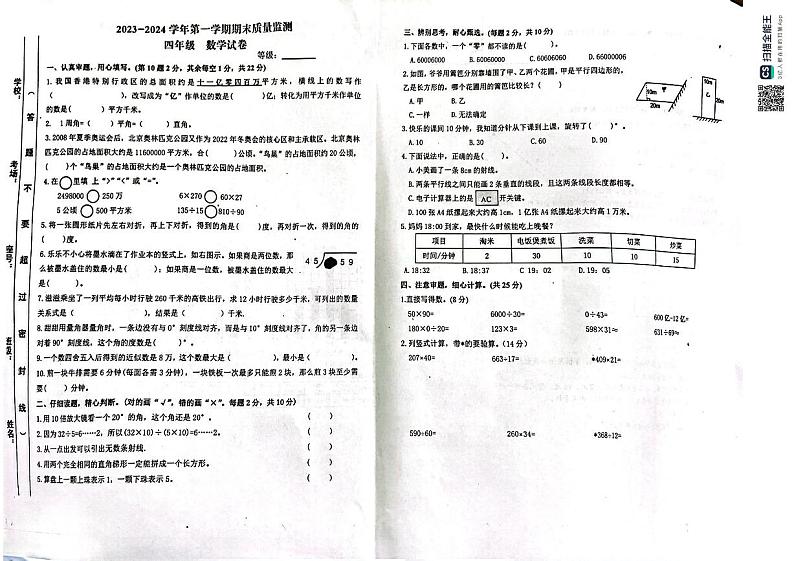 2023-2024 学年第一学期期末质量监测
四年级 数学试卷
等级：
学校：
考场：
座号：
班级：
姓名：
（答题不要超过密封线）
一、认真审题，用心填写。(第 10 题 2 分，其余每空 1 分，共 22 分)
1. 我国香港特别行政区的总面积约是十一亿零四百万平方米，横线上的数写作
（ ），改写成为“亿”作单位的数是（ ）亿；转化为用平方千米作单位
的数是（ ）平方千米。
2. 1 周角=（ ）平角=（ ）直角。
3. 2008 年夏季奥运会后，北京奥林匹克公园又作为 2022 年冬奥会的核心区和主承载区。北京奥林
匹克公园的占地面积大约是 11600000 平方米，合（ ）公顷。“鸟巢”的占地面积约 20 公顷，
（ ）个“鸟巢”的占地面积大约是一个奥林匹克公园的占地面积。
4. 在○里填 上“>”“<” 或 “=”。
2498000○250 万 6×270○60×27
5 公顷○500 平方米 135÷15○810÷90
5. 将一张圆形纸片先左右对折，再上下对折，得到的角是（ ）度，再对折一次，得到的角的
（ ）度。
6. 乐乐不小心将墨水滴在了作业本的竖式上，如右图示。如果商是两位数，那
么被墨水盖住的数最小是（ ）；如果商是一位数，被墨水盖住的数最大
是（ ）。
4 5 5 9
7. 滋滋乘坐了一列平均每小时行驶 260 千米的高铁出行，求 12 小时行驶多少千米，可列出的数量
关系式是（ ），结果是（ ）千米.
8. 甜甜用量角器量角时，一条边没有与 0° 刻度线对齐，而是与 10° 刻度线对齐了，角的另一条边
对着 90° 刻度线，这个角的度数是（ ）°。
9. 一个数四舍五入后得到的近似数是 8 万，这个数最大是（ ），最小是（ ）。
10. 煎一块牛排需要 6 分钟(每面各需 3 分钟)，一块铁板一次最多只能煎 2 块，那么煎 3 块至少需
要（ ）分钟。
二、仔细读题，精心判断。(对的画“√”，错的画“×”。每题 2 分，共 10 分)
1. 用 10 倍放大镜看一个 20° 的角，这个角还是 20° 。 （ ）
2. 因为 32÷5=6……2，所以(32×10)÷(5×10)=6……2。 （ ）
3. 从一点出发可以引出无数条射线. （ ）
4. 用两个完全相同的直角梯形一定能拼成一个长方形。 （ ）
5. 算盘上一颗上珠表示 1，一颗下珠表示 5。 （ ）
三、辨别思考，耐心甄选。(每题 2 分，共 10 分)
1. 下面各数中，一个“零”都不读的是（ ）。
A. 60060000 B. 60060060 C. 60600060 D. 66000006
2. 如图，爷爷用篱笆分别靠墙围了甲、乙两个花圃，甲是平行四边形的，
乙是长方形的。哪个花圃用的篱笆比较长?（ ）
A. 甲 B. 乙
C. 一样 D. 无法确定
甲 10m 20m
10m 乙 20m
3. 快乐的课间 10 分钟，我知道分针从下课到上课，旋转了（ ）°。
A. 10 B. 30 C. 60 D. 90
4. 下面说法中，正确的是（ ）。
A. 小美画了一条 8cm 的射线。
B. 两条平行线之间只能画 2 条垂直的线段，且这两条线段长度都相等。
C. 电子计算器上的是 AC 开关键。
D. 100 张 A4 纸摞起来大约高 1cm，1 亿张 A4 纸摞起来大约高 1 万米。
5. 妈妈 18:00 到家，最快什么时候能吃上晚餐?
项目 淘米 电饭煲煮饭 洗菜 切菜 炒菜
时间/分钟 2 30 10 10 15
A. 18:32 B. 18:37 C 19：02 D. 19：05
四、注意审题，细心计算。(共 25 分)
1.直接写得数。(8 分)
50×90= 6000÷30= 0÷43= 600 亿-12 亿=
180×0÷20= 123×3= 598×31≈ 631÷69≈
2. 列竖式计算，带*的要验算。(14 分)
207×40= 663÷17= *409×21=
590÷60= 260×34= *368÷12=
CS 扫描全能王
3亿人都在用的扫描App